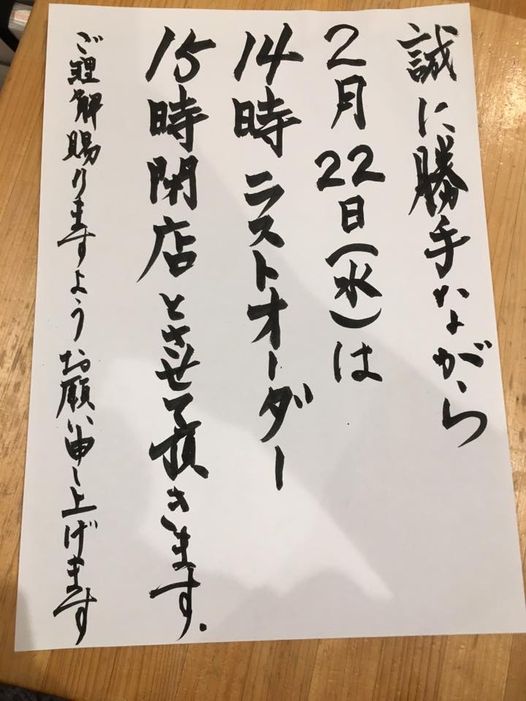 誠に勝手ながら
2月22日(水)は
14時ラストオーダー
15時閉店とさせて頂きます.
ご理解賜りますようお願い申し上げます